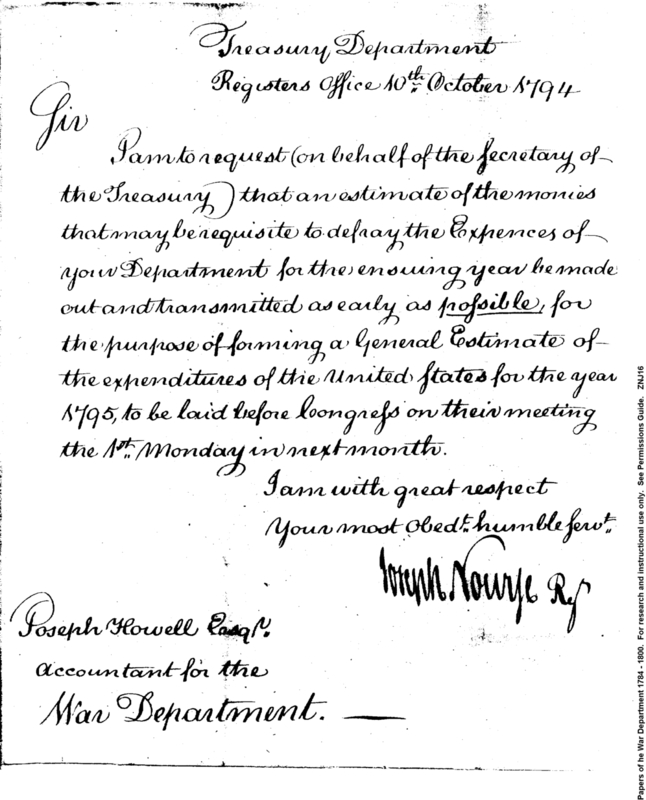 Treasury Department
Registers Office 10th October 1794
Sir
I am to request (on behalf of the Secretary of
the Treasury) that an estimate of the monies
that may be requisite to defray the Expences of
your Department for the ensuing year be made
out and transmitted as early as possible, for
the purpose of forming a General Estimate of
the expenditures of the United States for the year
1795, to be laid before Congress on their meeting
the 1st Monday in next month.
I am with great respect
Your most Obedt. humble Servt.
Joseph Nourse Regr
Joseph Howell Esqr.
Accountant for the
War Department.
Papers of he War Department 1784 - 1800. For research and instructional use only. See Permissions Guide. ZNJ16